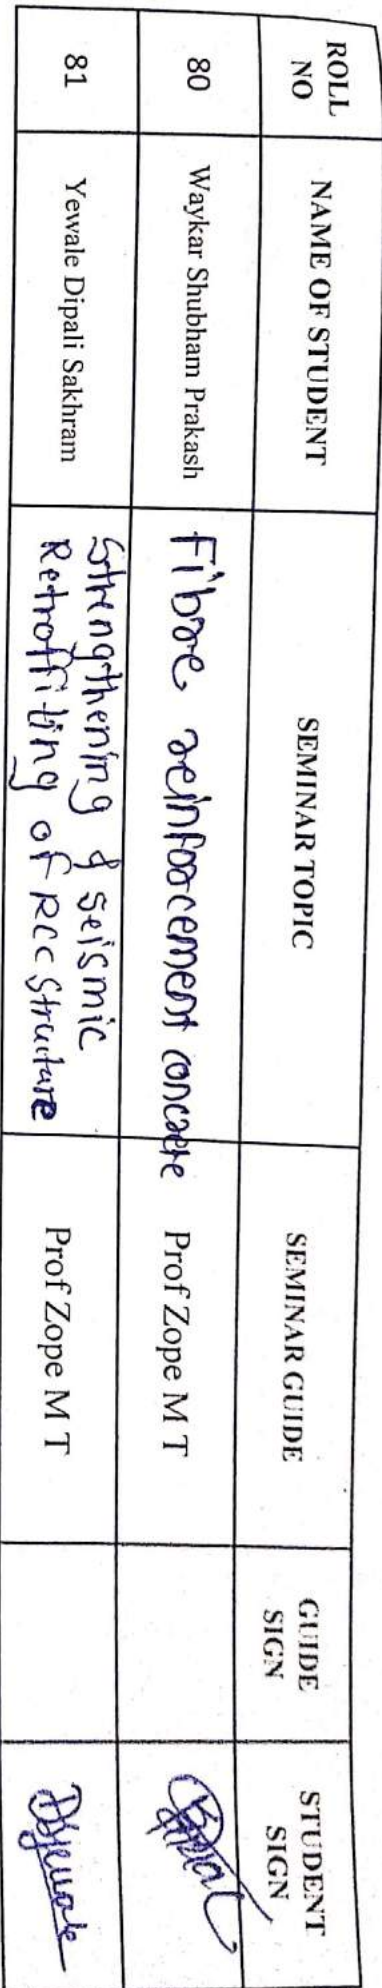 ROLL NO
NAME OF STUDENT
SEMINAR TOPIC
SEMINAR GUIDE
GUIDE SIGN
STUDENT SIGN
80
Waykar Shubham Prakash
Fibre reinforcement concrete
Prof Zope M T
81
Yewale Dipali Sakhram
Strengthening & seismic
Retrofitting of RCC Structure
Prof Zope M T
DSYewale